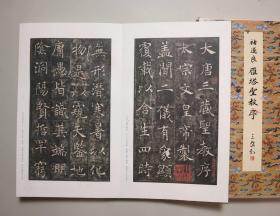 褚遂良 雁塔聖教序
大唐三藏聖教序
太宗文皇帝製
盖聞二儀有像顯
覆載以含生四時
無形潛寒暑以化
物是以窺天鑒地
庸愚皆識其端明
陰洞陽賢哲罕窮